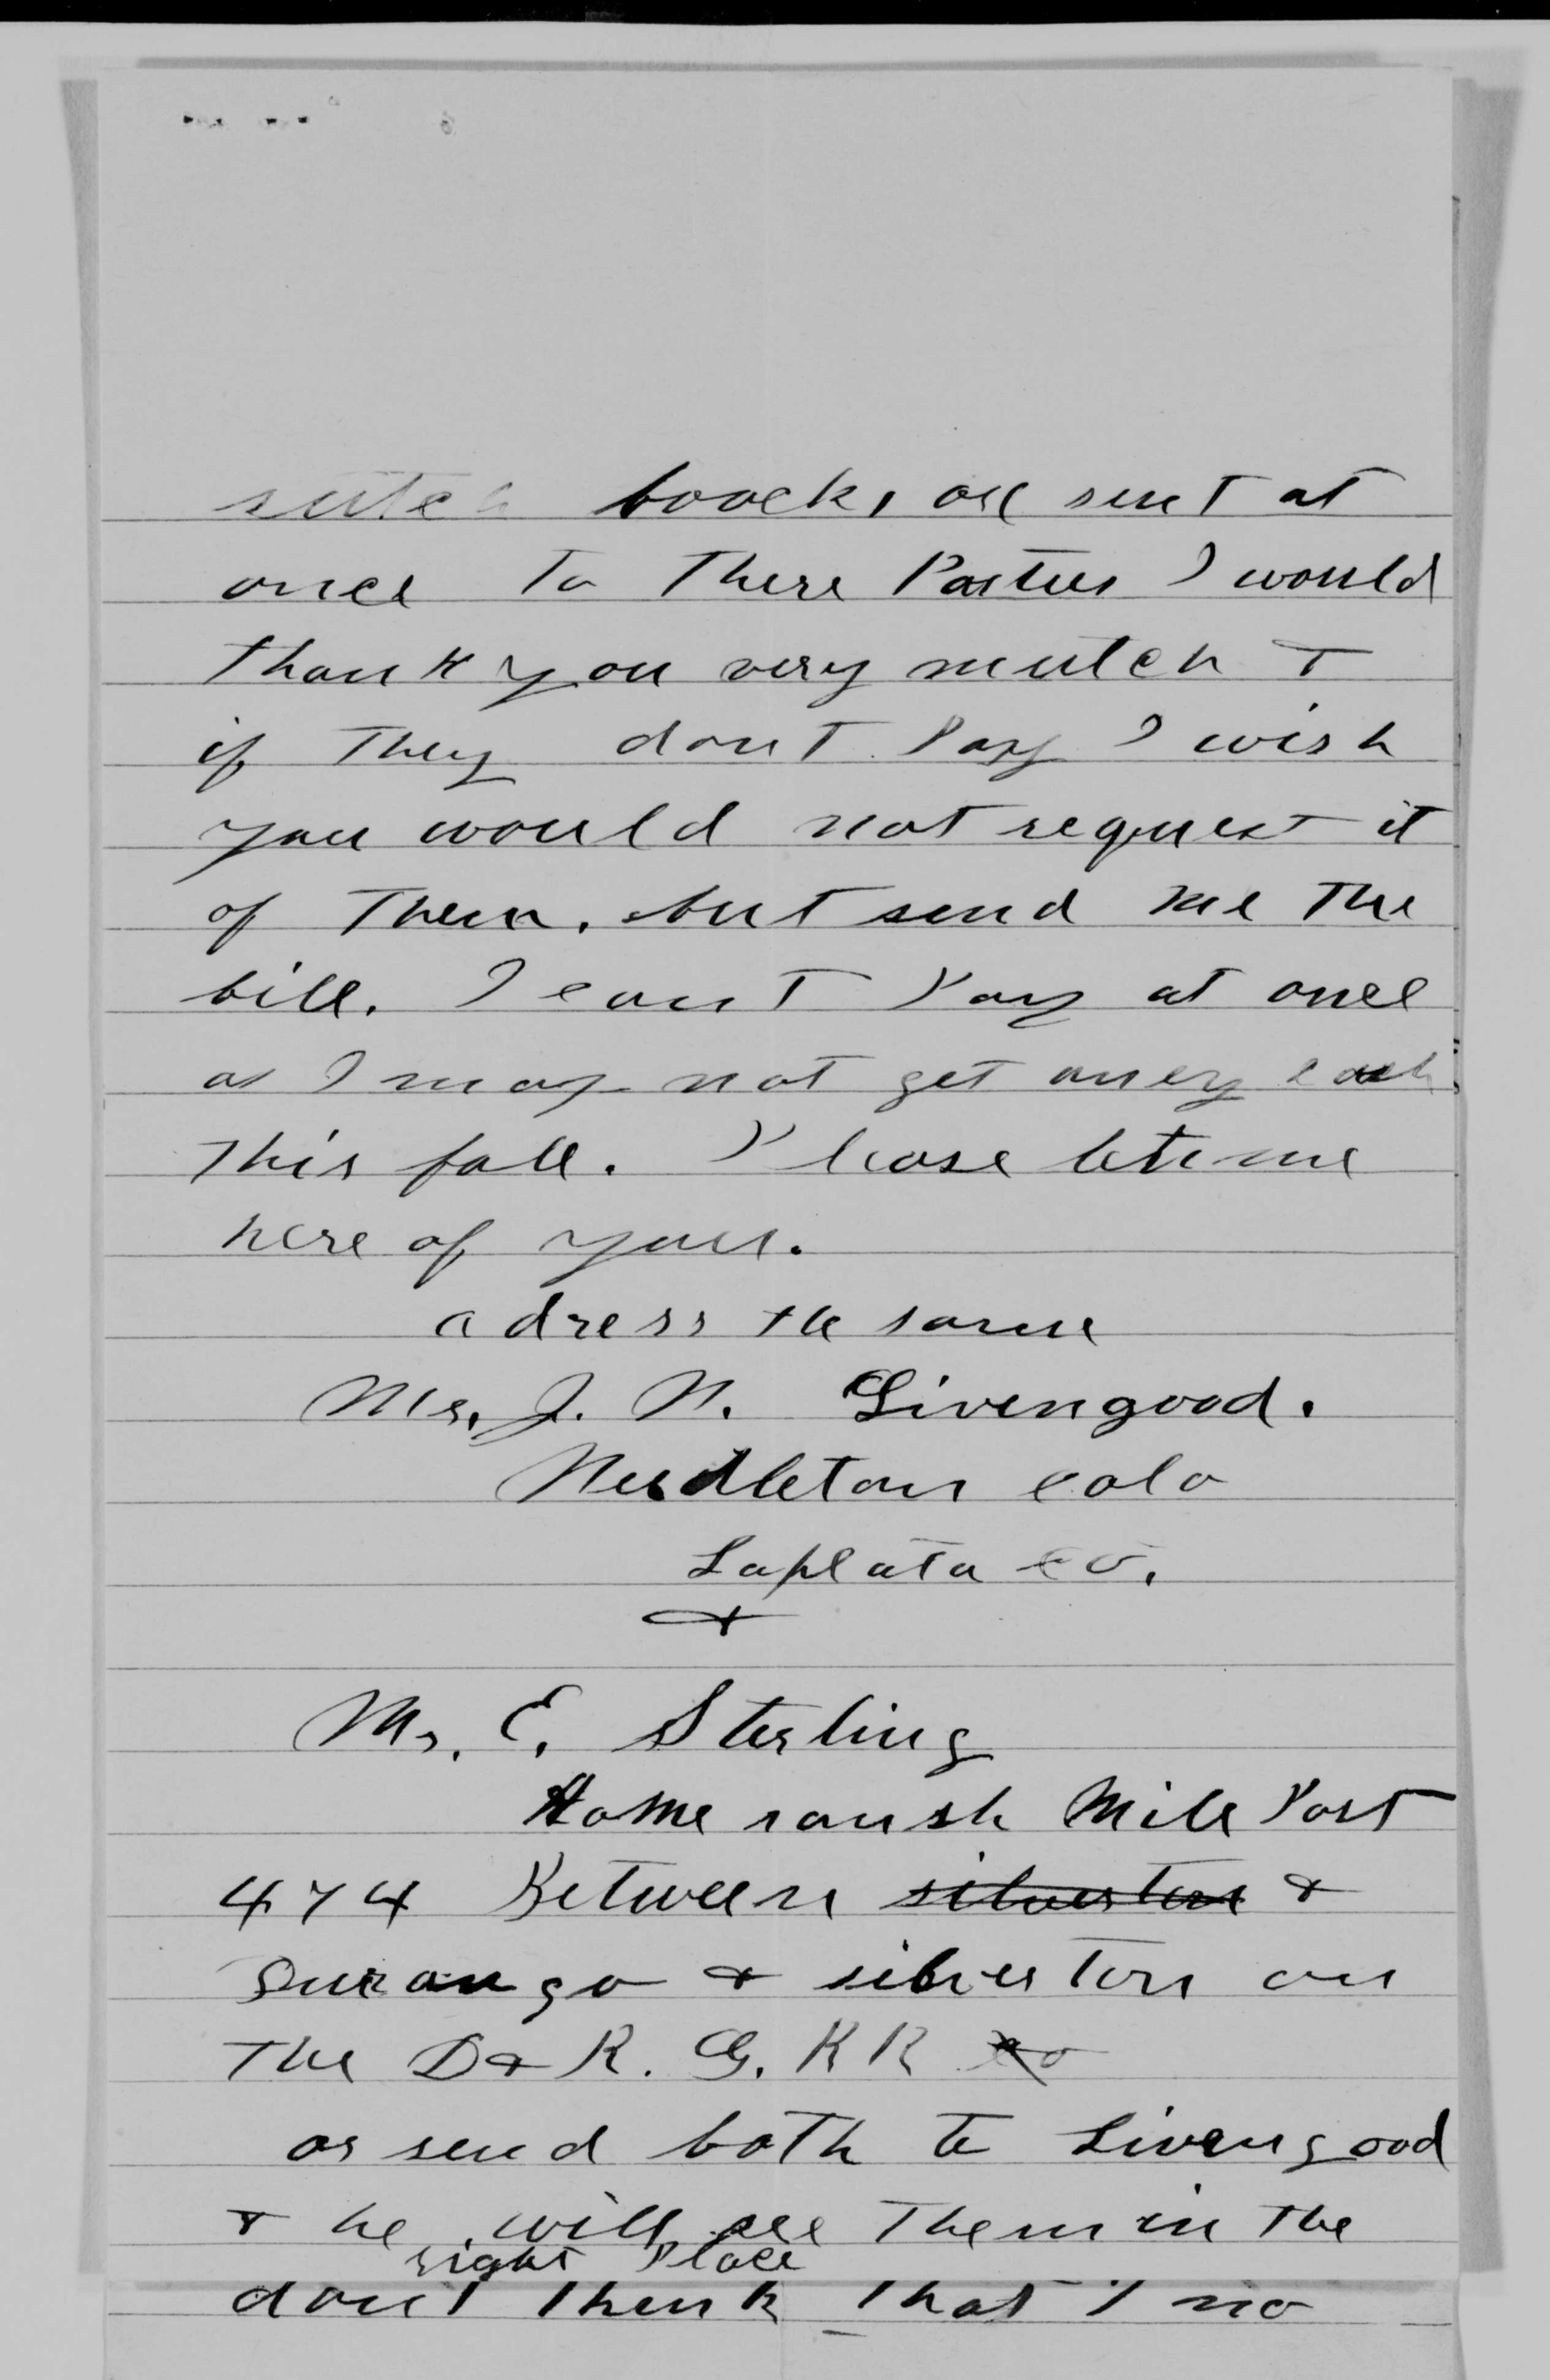 sutchboocks are sent at
once To These Parties I would
thank you very mutch &
if They dont Pay I wish
you would not request it
of Them. but send me The
bill. I cant Pay at once
as I may not get aney cash
This fall. Please let me
here of you.
adress the same
Mr. J. N. Livengood.
Needleton colo
Laplata co.
&
Mr. E. Sterling
Home ransh Mile Post
474 Between silverton &
Durango & silverton on
The D & R. G. R R co
or send both to Livengood
& he will see Them in the
right Place
dont think That I no